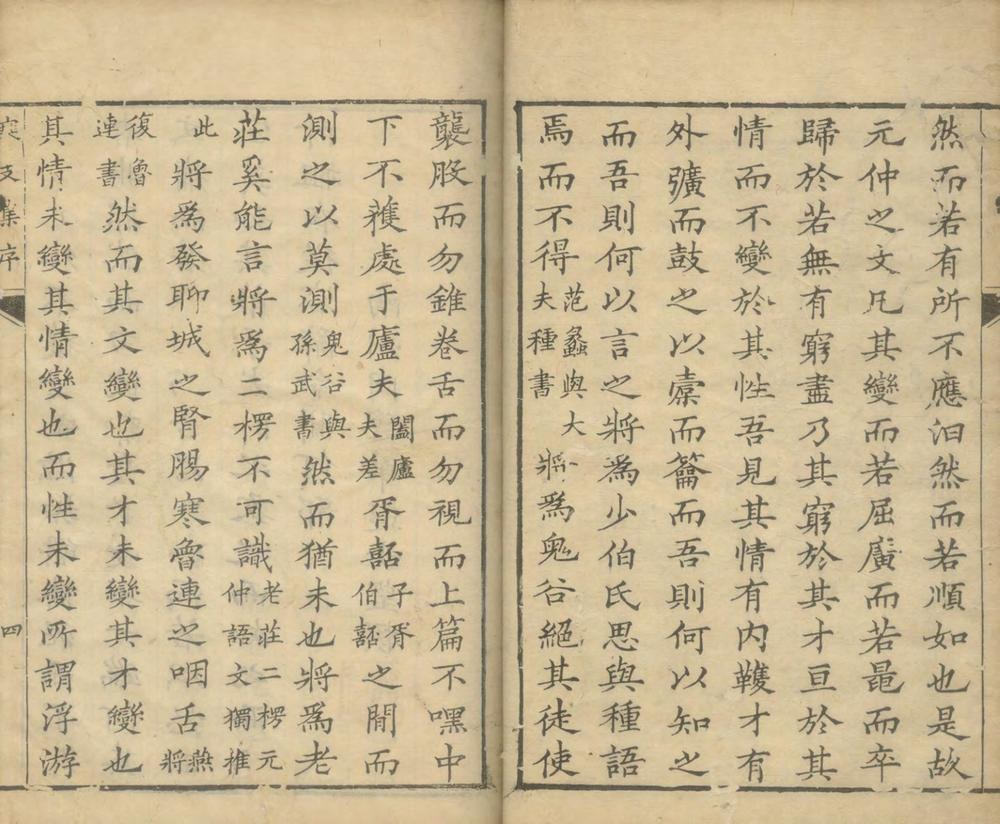 然而若有所不應汩然而若順如也是故
元仲之文凡其變而若屈廣而若黽而卒
歸於若無有窮盡乃其窮於其才亘於其
情而不變於其性吾見其情有內韄才有
外彍而鼓之以橐而籥而吾則何以知之
而吾則何以言之將為少伯氏思與種語
焉而不得范蠡與大夫種書將為鬼谷絕其徒使
襲股而勿錐卷舌而勿視而上篇不嘿中
下不蘀處于廬夫闔廬夫差胥嚭子胥伯嚭之間而
測之以莫測鬼谷與孫武書然而猶未也將為老
莊奚能言將為二楞不可識老莊二楞元仲語文獨推
此將為發聊城之腎腸寒魯連之咽舌燕將
復魯連書然而其文變也其才未變其才變也
其情未變其情變也而性未變所謂浮游
集序
四